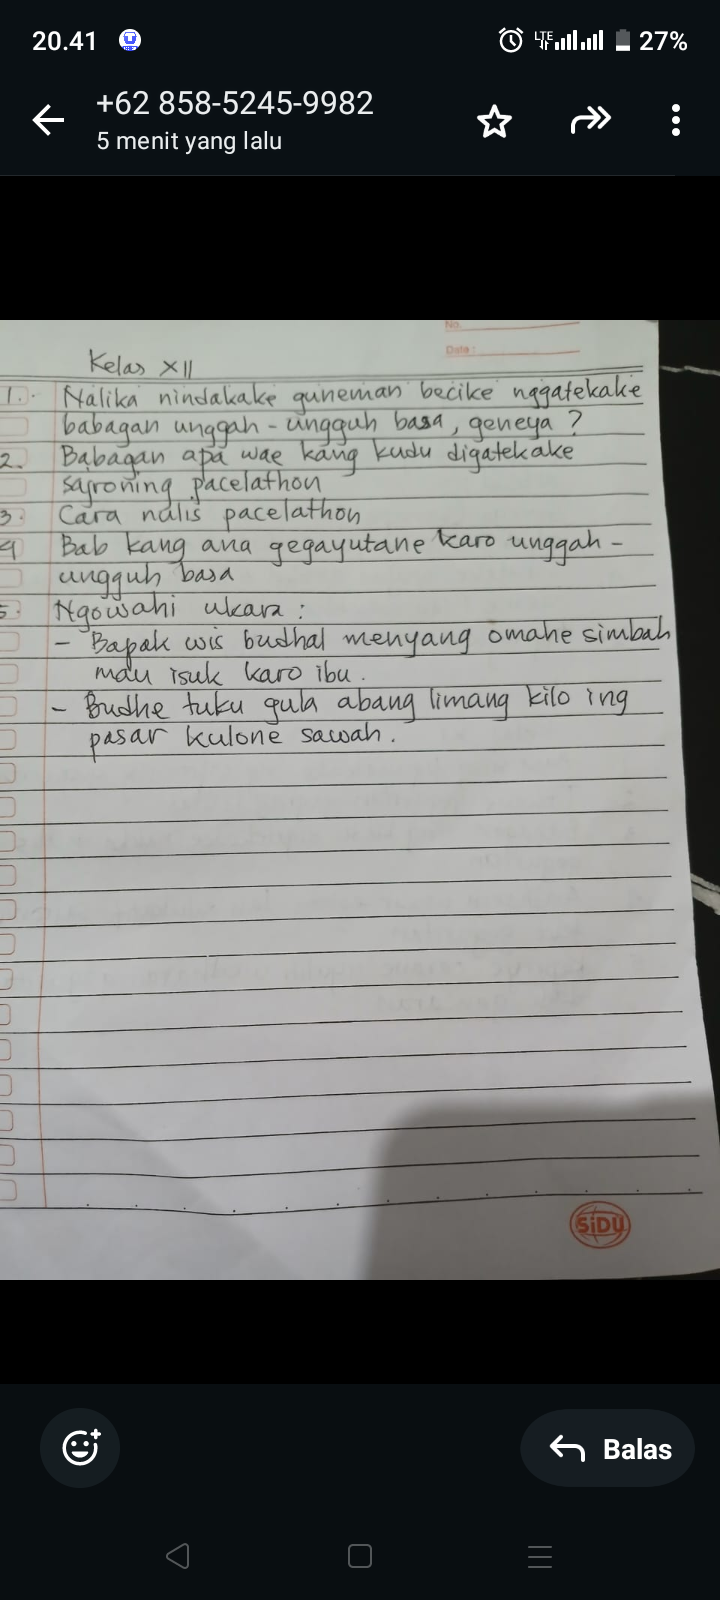 20.41
LTE
27%
+62 858-5245-9982
5 menit yang lalu
No.
Date :
Kelas XII
1. Nalika nindakake guneman becike nggatekake
babagan unggah - ungguh basa, geneya ?
2. Babagan apa wae kang kudu digatekake
sajroning pacelathon
3. Cara nulis pacelathon
4 Bab kang ana gegayutane karo unggah -
ungguh basa
5. Ngowahi ukara :
- Bapak wis budhal menyang omahe simbah
mau isuk karo ibu.
- Budhe tuku gula abang limang kilo ing
pasar kulone sawah.
SiDU
Balas